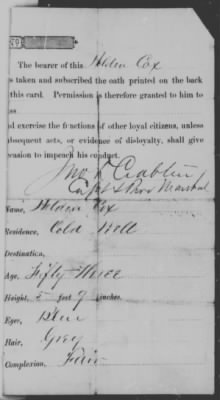 The bearer of this Holden Cox
s taken and subscribed the oath printed on the back
this card. Permission is therefore granted to him to
ss
nd exercise the functions of other loyal citizens, unless
ubsequent acts, or evidence of disloyalty, shall give
ccasion to impeach his conduct.
Capt & Prov Marshal
Name, Holden Cox
Residence, Cold
Destination,
Age, Fifty Three
Height, 5 feet 9 inches.
Eyes, Blue
Hair, Grey
Complexion, Fair